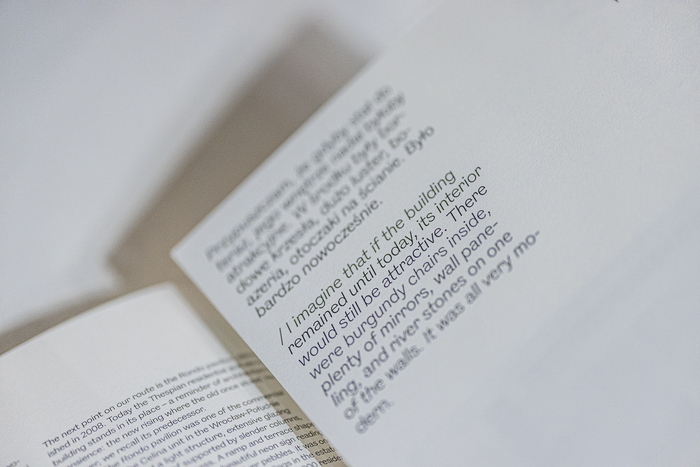 gdyby stał do
dziś, jego wnętrze nadal byłoby
atrakcyjne. W środku były bor-
dowe krzesła, dużo luster, bo-
azeria, otoczaki na ścianie. Było
bardzo nowocześnie.
/ I imagine that if the building
remained until today, its interior
would still be attractive. There
were burgundy chairs inside,
plenty of mirrors, wall pane-
ling, and river stones on one
of the walls. It was all very mo-
dern.
The next point on our route is the Rondo
ished in 2008. Today the Thespian residential
building stands in its place – a reminder of
the new rising where the old once
we recall its predecessor.
Rondo pavilion was one of the commercial
unit in the Wrocław-Południe
light structure, extensive glazing
supported by slender columns,
A ramp and terrace
neon sign
pebbles. It was